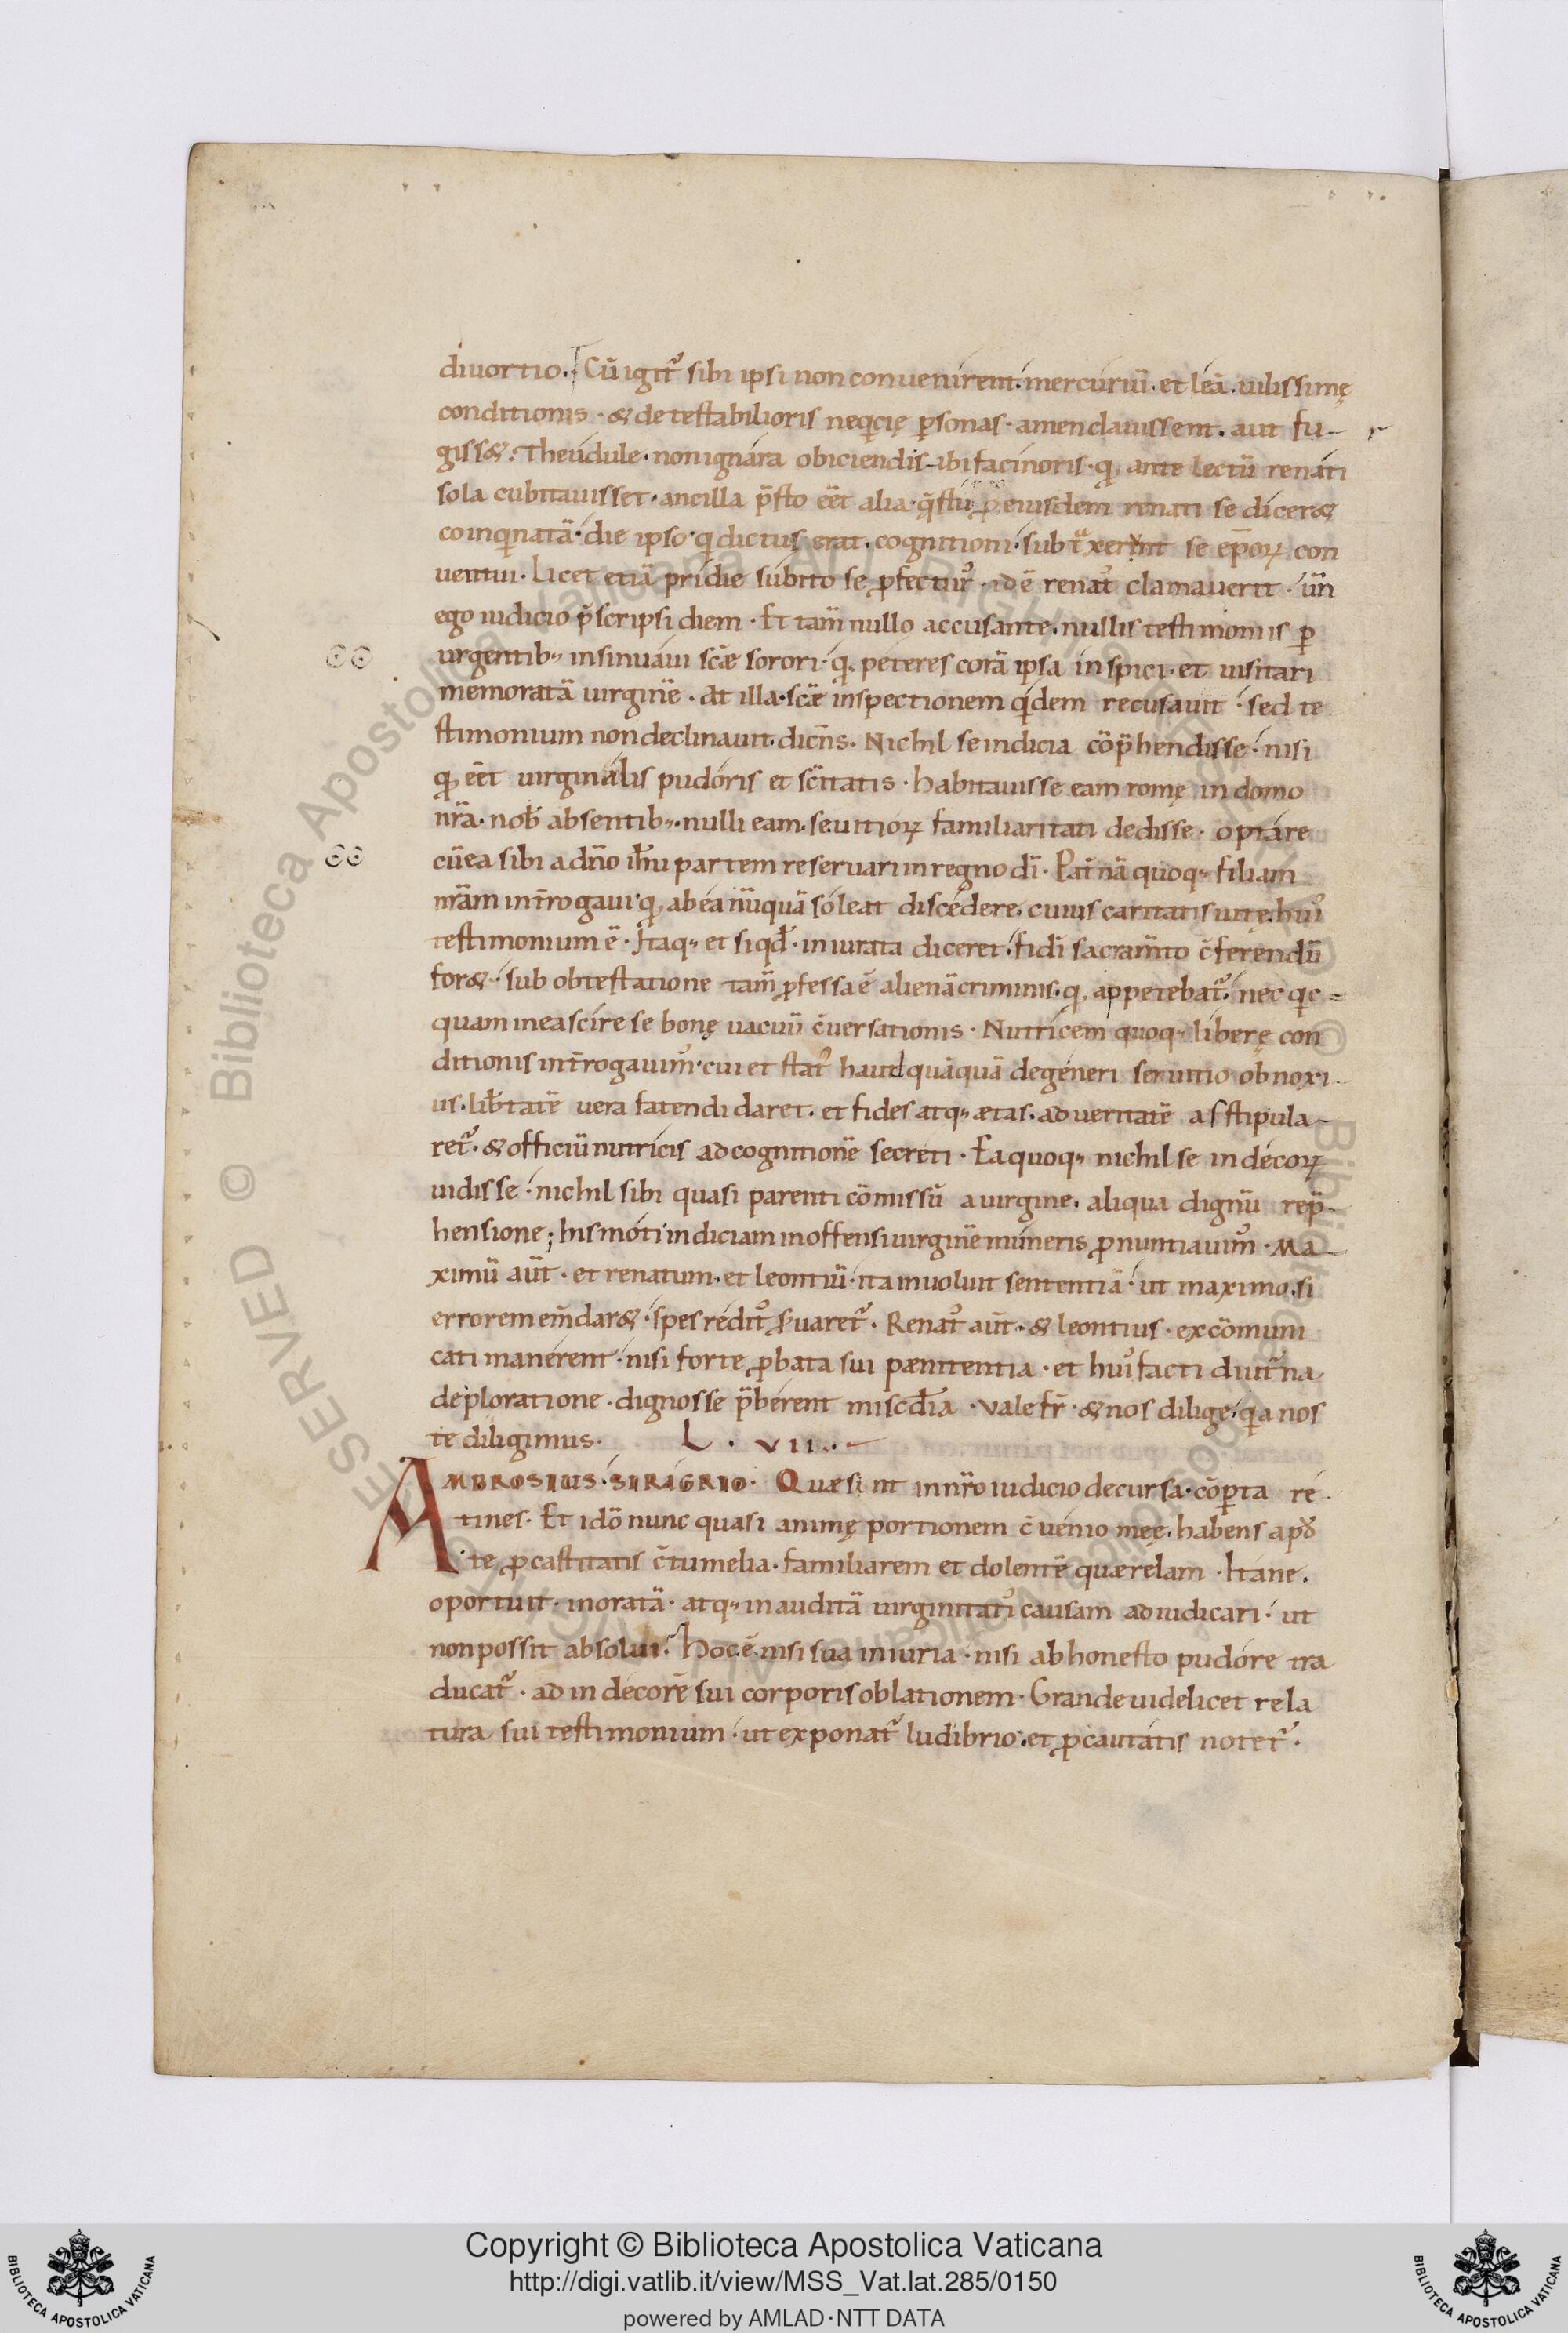 diuortio. Cū igit᷑ sibi ipsi non conuenirent. mercuriū. et leā. uilissimę
conditionis · & detestabilioris neq̇cię ꝑsonas · amendauissent. aut fu-
giss&. Theudule. non ignara obiciendi sibi facinoris · qđ ante lectū renati
sola cubitauisset · ancilla p̄sto eēt alia · q̄ stuprū eiusdem renati se dicer&
coinq̇natā · die ipso · q̇ dictus erat. cognitioni · subtraxerunt se epōꝝ con
uentui · Licet etiā pridie subito se ꝓfecturꝰ · idē renatꝰ clamauerit · un̄
ego iudicio p̄scripsi diem · Et tam̄ nullo accusante. nullis testimoniis ꝑ
urgentib; insinuaui scǣ sorori · qđ peteres corā ipsa inspici · et uisitari
memoratā uirginē · At illa · scǣ inspectionem q̇dem recusauit · sed te
stimonium non declinauit. dicn̄s. Nichil se indicia cōp̄hendisse · nisi
qđ eēt uirginalis pudoris et sc̄itatis · habitauisse eam romę in domo
nr̄a · nob̄ absentib; · nulli eam · seuitioꝝ familiaritati dedisse · optare
cū ea sibi a dn̄o ih̄u partem reseruari in regno dī · Pat̄nā quoq; filiam
nr̄am int̄rogaui · qđ ab ea nūquā soleat discedere. cuius caritatis uitę. huiꝰ
testimonium ē · Itaq; et siqd̄ · iniurata diceret · fidī sacram̄to c̄ferendū
for& · sub obtestatione tam̄ ꝓfessa ē alienā criminis · qđ appetebat᷑. nec q̇c=
quam in ea scire se bonę uacuū c̄uersationis · Nutricem quoq; liberę con
ditionis int̄rogauimꝰ · cui et statꝰ haudquāquā degeneri seruitio obnoxi-
us · lib̄tatē uera fatendi daret. et fides atq; ætas. ad ueritatē asstipula-
ret᷑. & officiū nutricis ad cognitionē secreti · Ea quoq; nichil se indecoꝝ
uidisse · nichil sibi quasi parenti cōmissū a uirgine. aliqua dignū rep̄-
hensione; his moti indiciam inoffensi uirginē muneris ꝓnuntiauimꝰ · Ma-
ximū aūt · et renatum. et leontiū · ita inuoluit sententiā · ut maximo. si
errorem em̄dar& · spes reditꝰ ẜuaret᷑ · Renatꝰ aūt · & leontius · excōmuni
cati manerent · nisi forte ꝓbata sui pænitentia · et huiꝰ facti diut̄na
deploratione · dignos se p̄berent miscd̄ia · Vale fr̄ · & nos dilige. q̇a nos
te diligimus. L · VII ·
AMBROSIUS · SIRAGRIO · Quæ sint in nr̄o iudicio decursa · cōꝑta re-
tines · Et idō nunc quasi animę portionem c̄uenio meę. habens apđ
te ꝓ castitatis c̄tumelia · familiarem et dolentē quærelam · Itane.
oportuit · inoratā · atq; inauditā uirginitatiꝰ causam adiudicari · ut
non possit absolui? Hoc ē. nisi sua iniuria · nisi ab honesto pudore tra
ducat᷑ · ad indecorē sui corporis oblationem · Grande uidelicet rela
tura sui testimonium · ut exponat᷑ ludibrio · et ꝓcauitatis notet᷑ ·
Copyright © Biblioteca Apostolica Vaticana
http://digi.vatlib.it/view/MSS_Vat.lat.285/0150
powered by AMLAD·NTT DATA